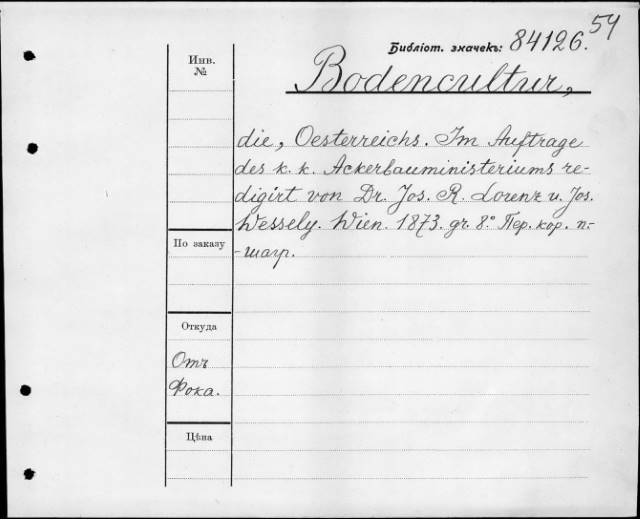 54
Библіот. значекъ: 84126.
Инв.
№
Bodencultur,
die, Oesterreichs. Im Auftrage
des k. k. Ackerbauministeriums re-
digirt von Dr. Jos. R. Lorenz u. Jos.
Wessely. Wien. 1873. gr. 8° Пер. кор. п.-
-шагр.
По заказу
Откуда
Отъ
Фока.
Цѣна